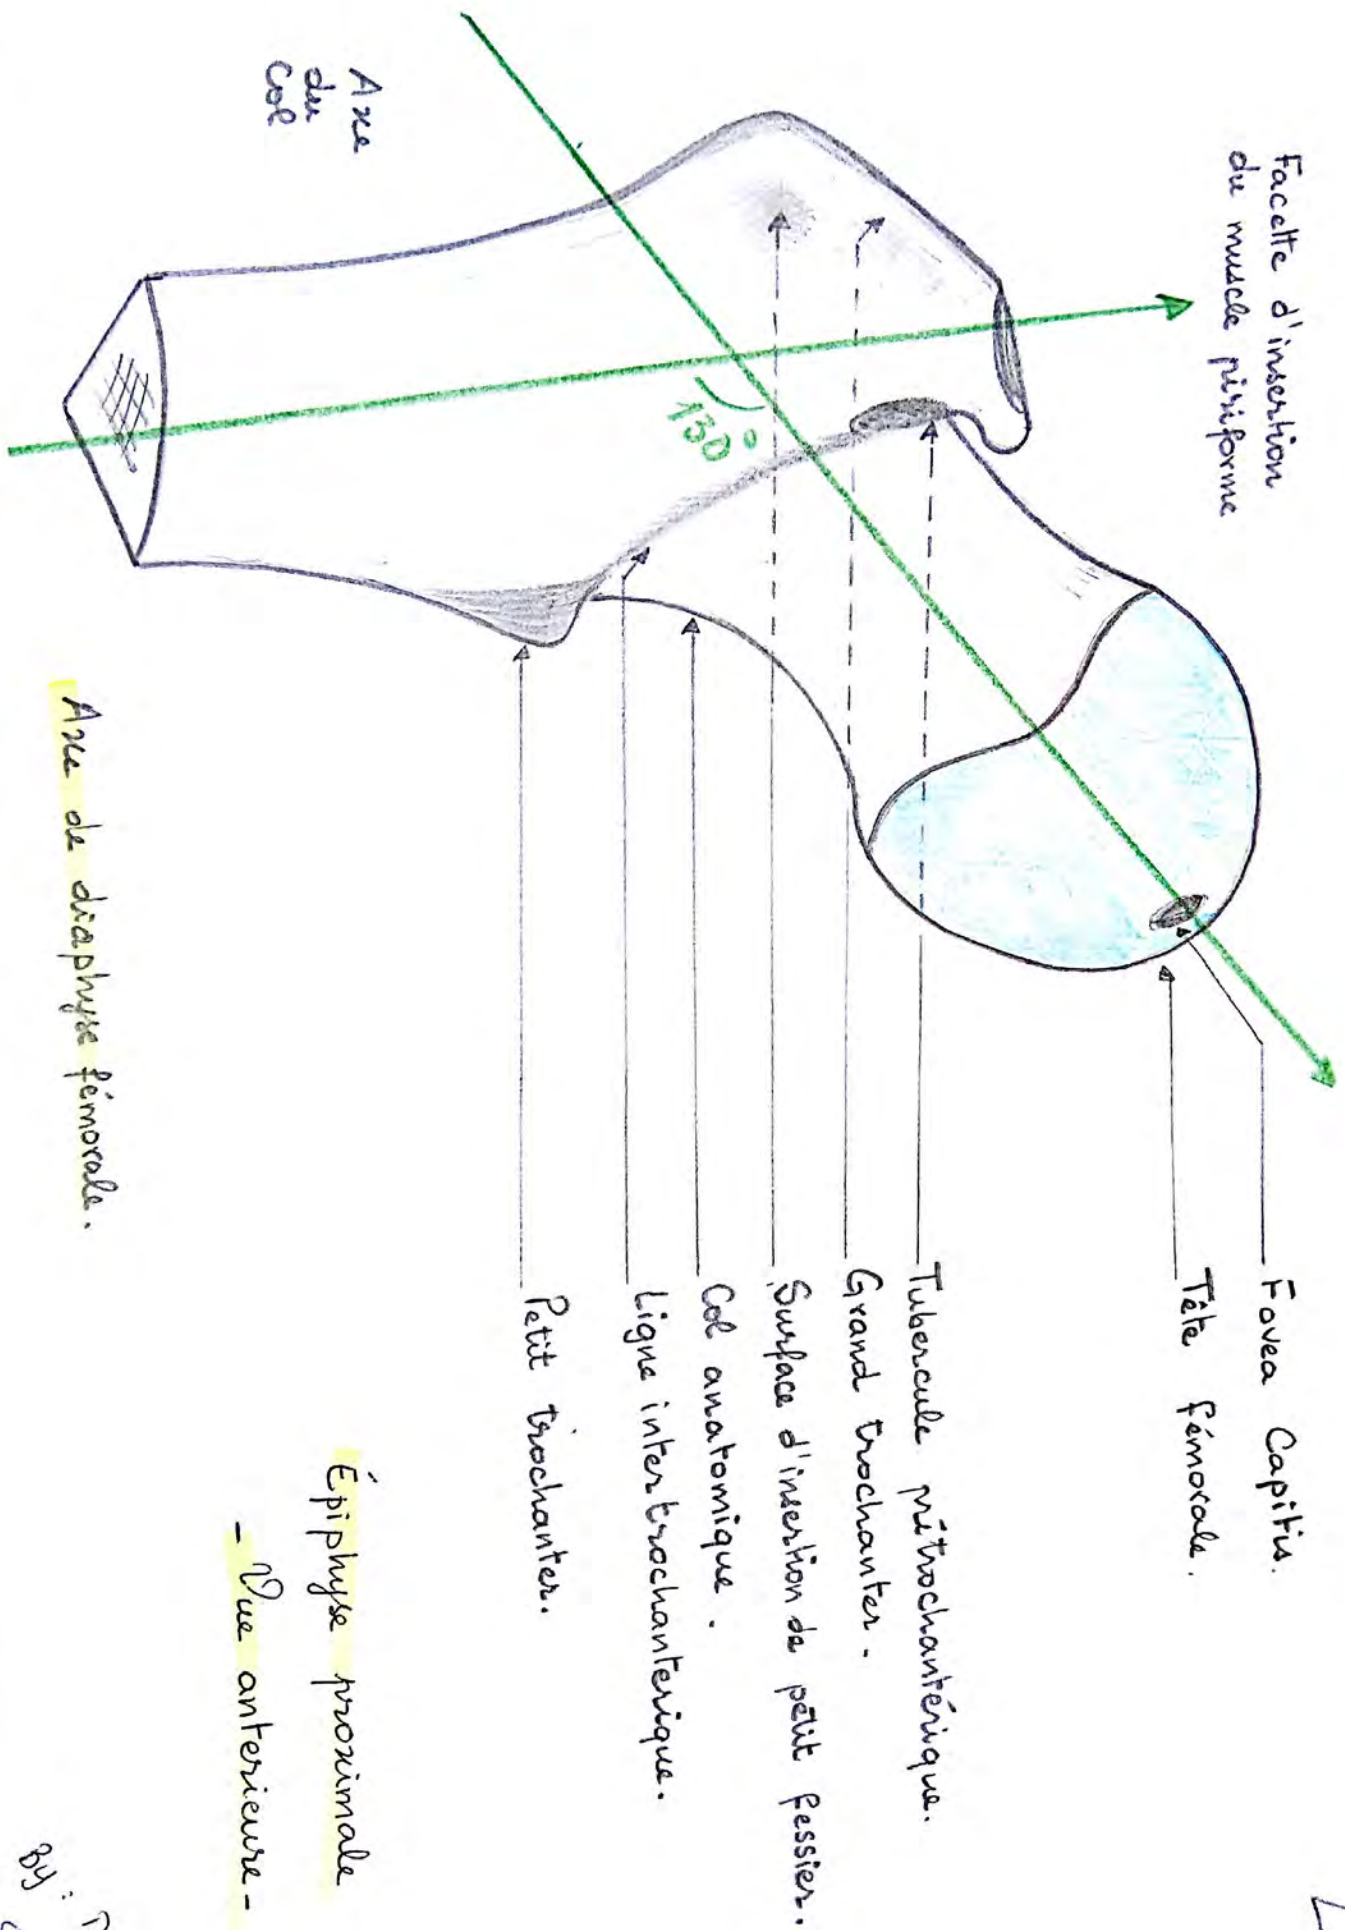 Facette d'insertion
du muscle pisiforme
Axe
du
Col
130°
Fovea Capitis.
Tête fémorale.
Tubercule prétrochantérique.
Grand trochanter.
Surface d'insertion de petit fessier.
Col anatomique.
Ligne intertrochanterique.
Petit trochanter.
Axe de diaphyse fémorale.
Épiphyse proximale
- Vue anterieure -
By :